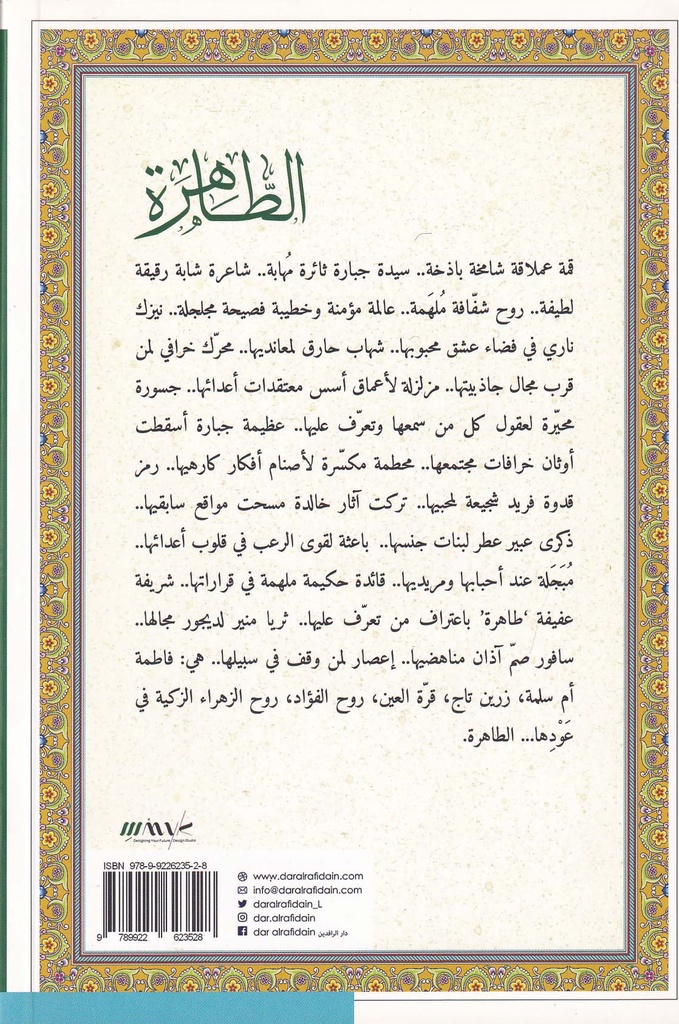 الطَّاهِرَة
قمة عملاقة شامخة باذخة.. سيدة جبارة ثائرة مُهابة.. شاعرة شابة رقيقة
لطيفة.. روح شفّافة مُلهَمة.. عالمة مؤمنة وخطيبة فصيحة مجلجلة.. نيزك
ناري في فضاء عشق محبوبها.. شهاب حارق لمعانديها.. محرّك خرافي لمن
قرب مجال جاذبيتها.. مزلزلة لأعماق أسس معتقدات أعدائها.. جسورة
محيّرة لعقول كل من سمعها وتعرّف عليها.. عظيمة جبارة أسقطت
أوثان خرافات مجتمعها.. محطمة مكسّرة لأصنام أفكار كارهيها.. رمز
قدوة فريد شجيعة لمحبيها.. تركت آثار خالدة مسحت مواقع سابقيها..
ذكرى عبير عطر لبنات جنسها.. باعثة لقوى الرعب في قلوب أعدائها..
مُبَجَلة عند أحبابها ومريديها.. قائدة حكيمة ملهمة في قراراتها.. شريفة
عفيفة ‘طاهرة’ باعتراف من تعرّف عليها.. ثريا منير لديجور مجالها..
سافور صمّ آذان مناهضيها.. إعصار لمن وقف في سبيلها.. هي: فاطمة
أم سلمة، زرين تاج، قرّة العين، روح الفؤاد، روح الزهراء الزكية في
عَوْدِها... الطاهرة.
Designing Your Future / Design Studio
ISBN 978-9-9226235-2-8
9 789922 623528
www.daralrafidain.com
info@daralrafidain.com
daralrafidain_L
dar.alrafidain
dar alrafidain دار الرافدين